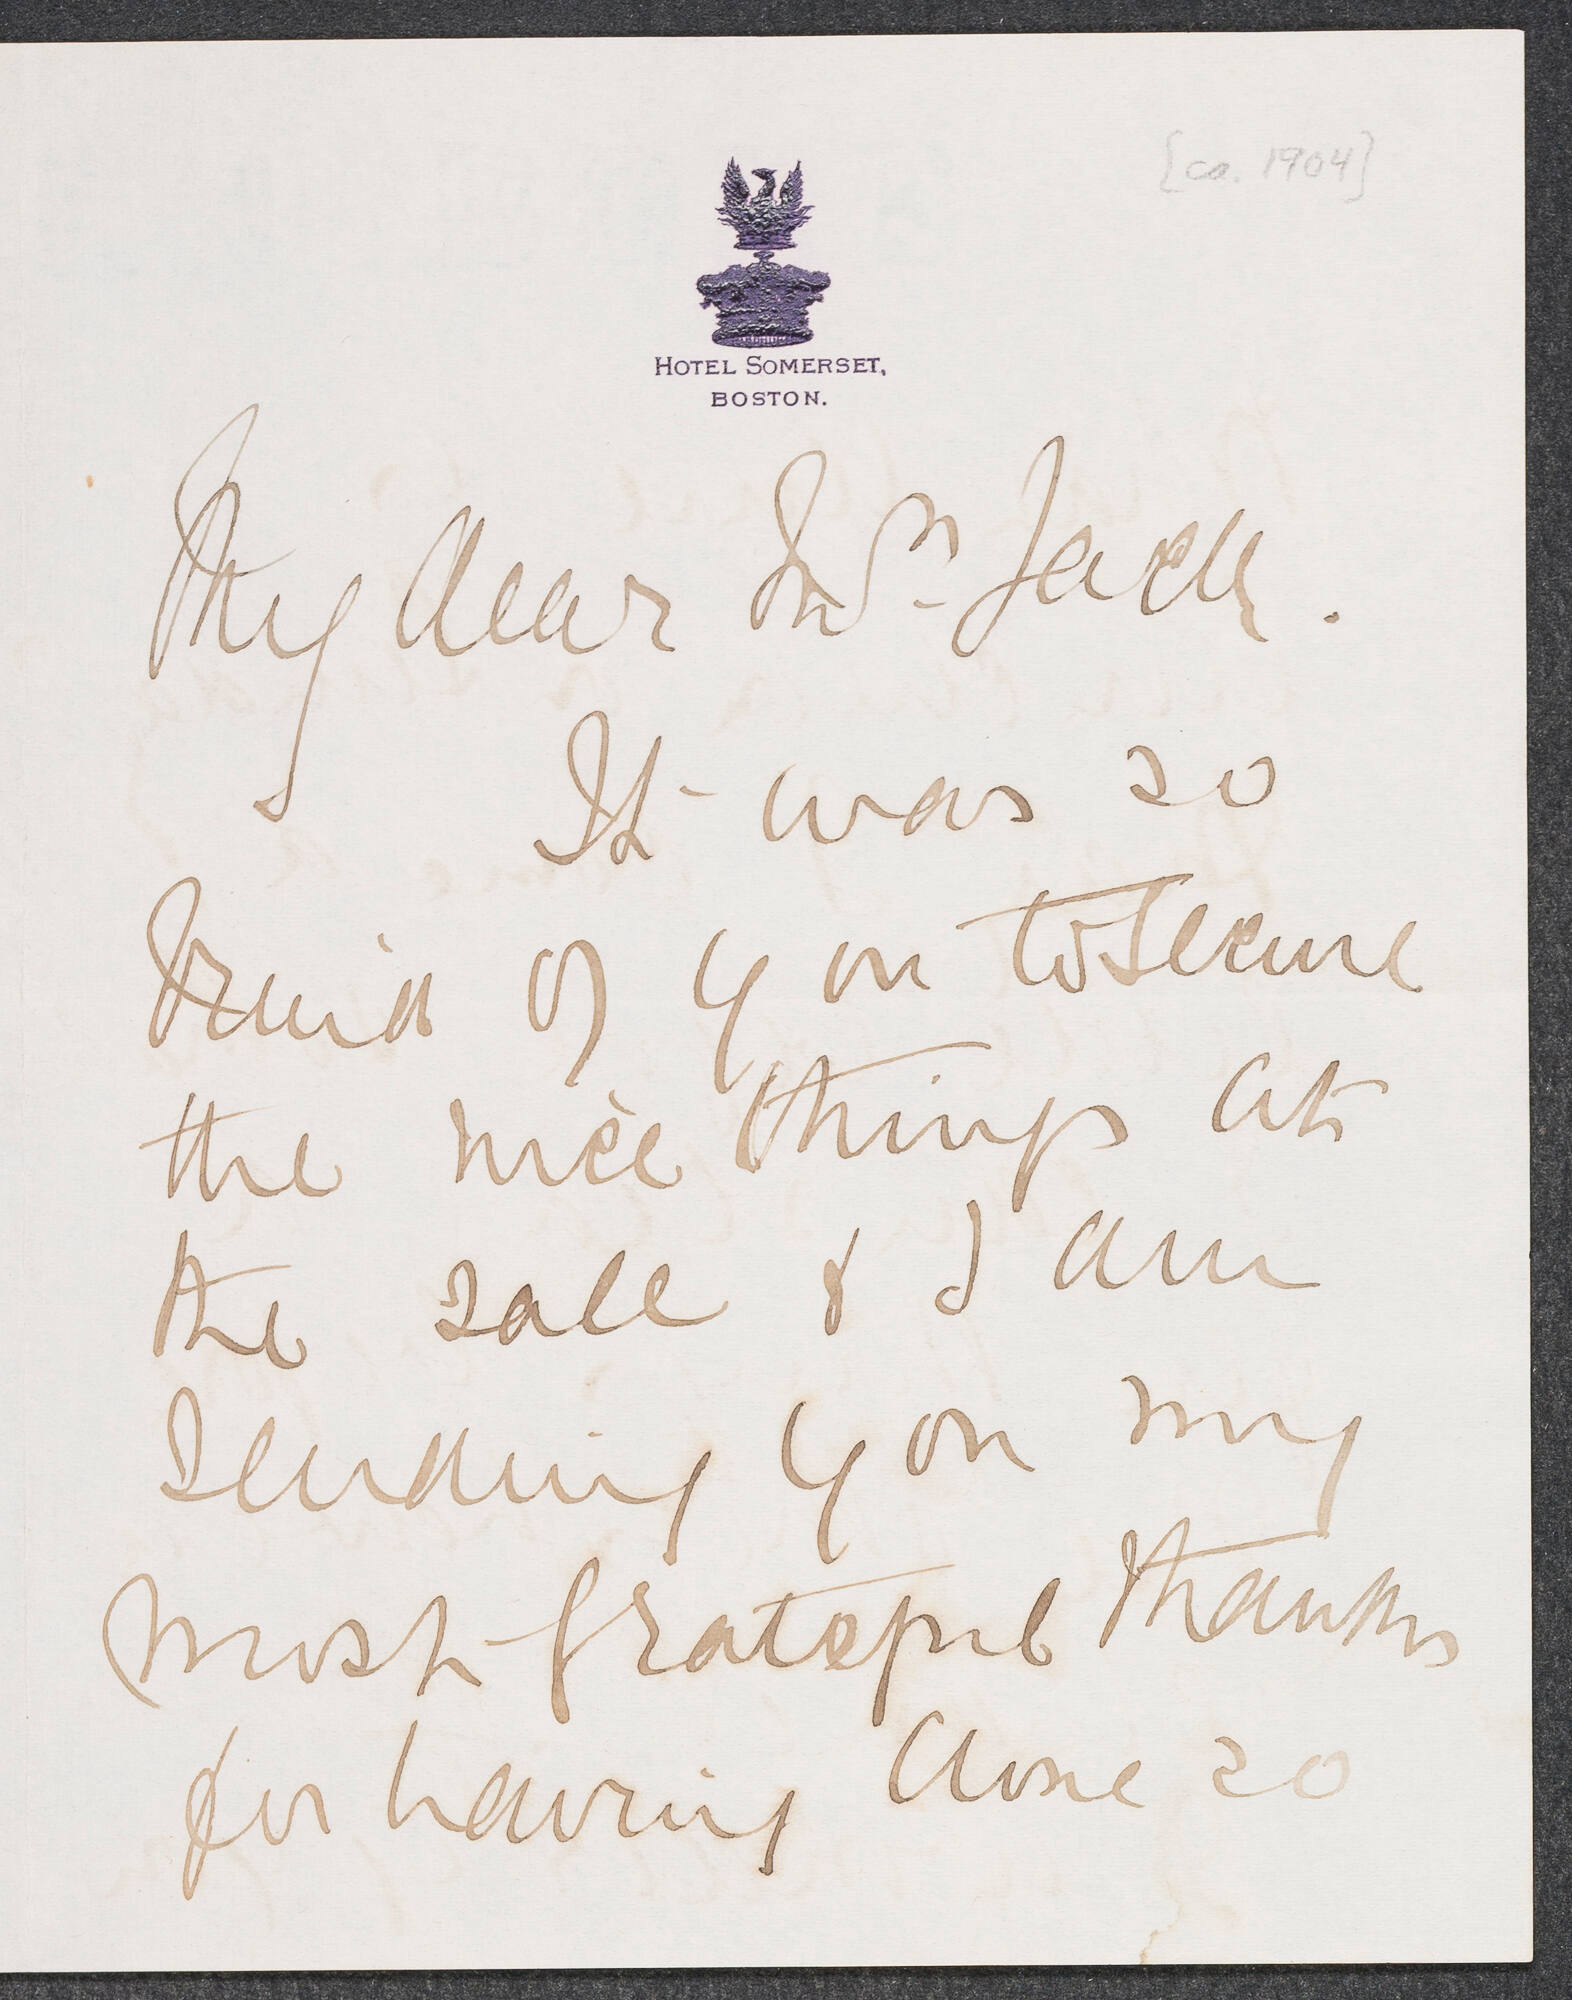 [ca. 1904]
HOTEL SOMERSET,
BOSTON.
My dear Mrs. Jack.
It was so
kind of you to secure
the nice things at
the sale & I am
sending you my
most grateful thanks
for having done so